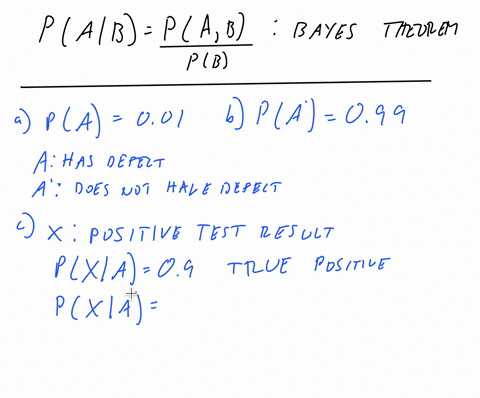 P(A|B) = P(A,B) / P(B) : BAYES THEOREM
a) P(A) = 0.01 b) P(A') = 0.99
A: HAS DEFECT
A': DOES NOT HAVE DEFECT
c) X: POSITIVE TEST RESULT
P(X|A) = 0.9 TRUE POSITIVE
P(X|A) =